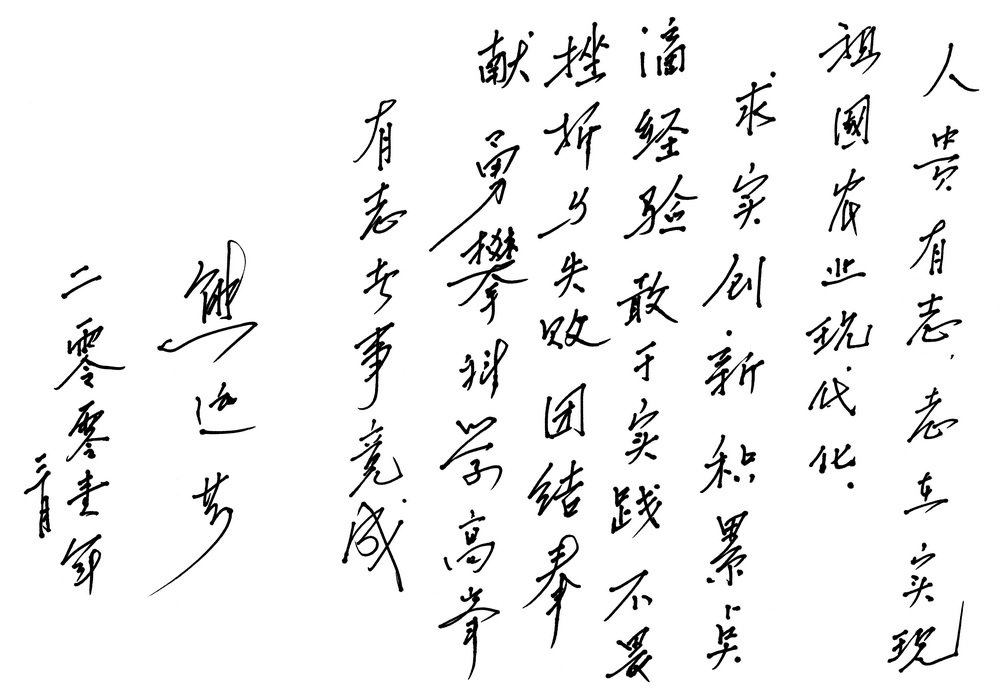 人贵有志，志在实现
祖國农业现代化．
求实创新 积累点
滴经验 敢于实践 不畏
挫折与失败 团结奉
献 勇攀科学高峰
有志者事竟成
熊
二零零壹年
三月